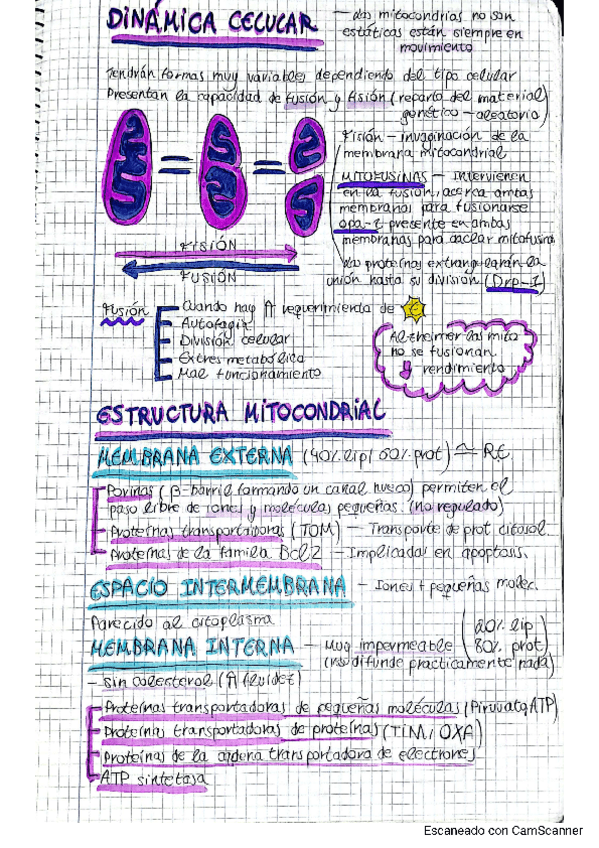 DINÁMICA CELULAR
- las mitocondrias no son
estáticas están siempre en
movimiento
Tendrán formas muy variables dependiendo del tipo celular
Presentan la capacidad de fusión y fisión (reparto del material
genético - aleatorio)
Fisión - invaginación de la
membrana mitocondrial
MITOFUSINAS - Intervienen
en la fusión, acerca ambas
membranas para fusionarse
opa-1 presente en ambas
membranas para anclar mitofusina
las proteínas extrangularán la
unión hasta su división (Drp-1)
FISIÓN
FUSIÓN
Fusión
Cuando hay ↑ requerimiento de E
Autofagia
División celular
Extres metabólico
Mal funcionamiento
Alzheimer las mito
no se fusionan
↓ rendimiento
ESTRUCTURA MITOCONDRIAL
MEMBRANA EXTERNA (40% lip/ 60% prot) ≃ RE
Porinas (β-barril formando un canal hueco) permiten el
paso libre de iones y moléculas pequeñas. (no regulado)
Proteínas transportadoras (TOM) - Transporte de prot citosol
Proteínas de la familia Bcl2 - Implicadas en apoptosis.
ESPACIO INTERMEMBRANA - Iones + pequeñas molec.
Parecido al citoplasma
MEMBRANA INTERNA - Muy impermeable (20% lip
80% prot)
(no difunde prácticamente nada)
- Sin colesterol (↑ fluidez)
Proteínas transportadoras de pequeñas moléculas (Piruvato, ATP)
Proteínas transportadoras de proteínas (TIM i OXA)
Proteínas de la cadena transportadora de electrones
ATP sintetasa
Escaneado con CamScanner